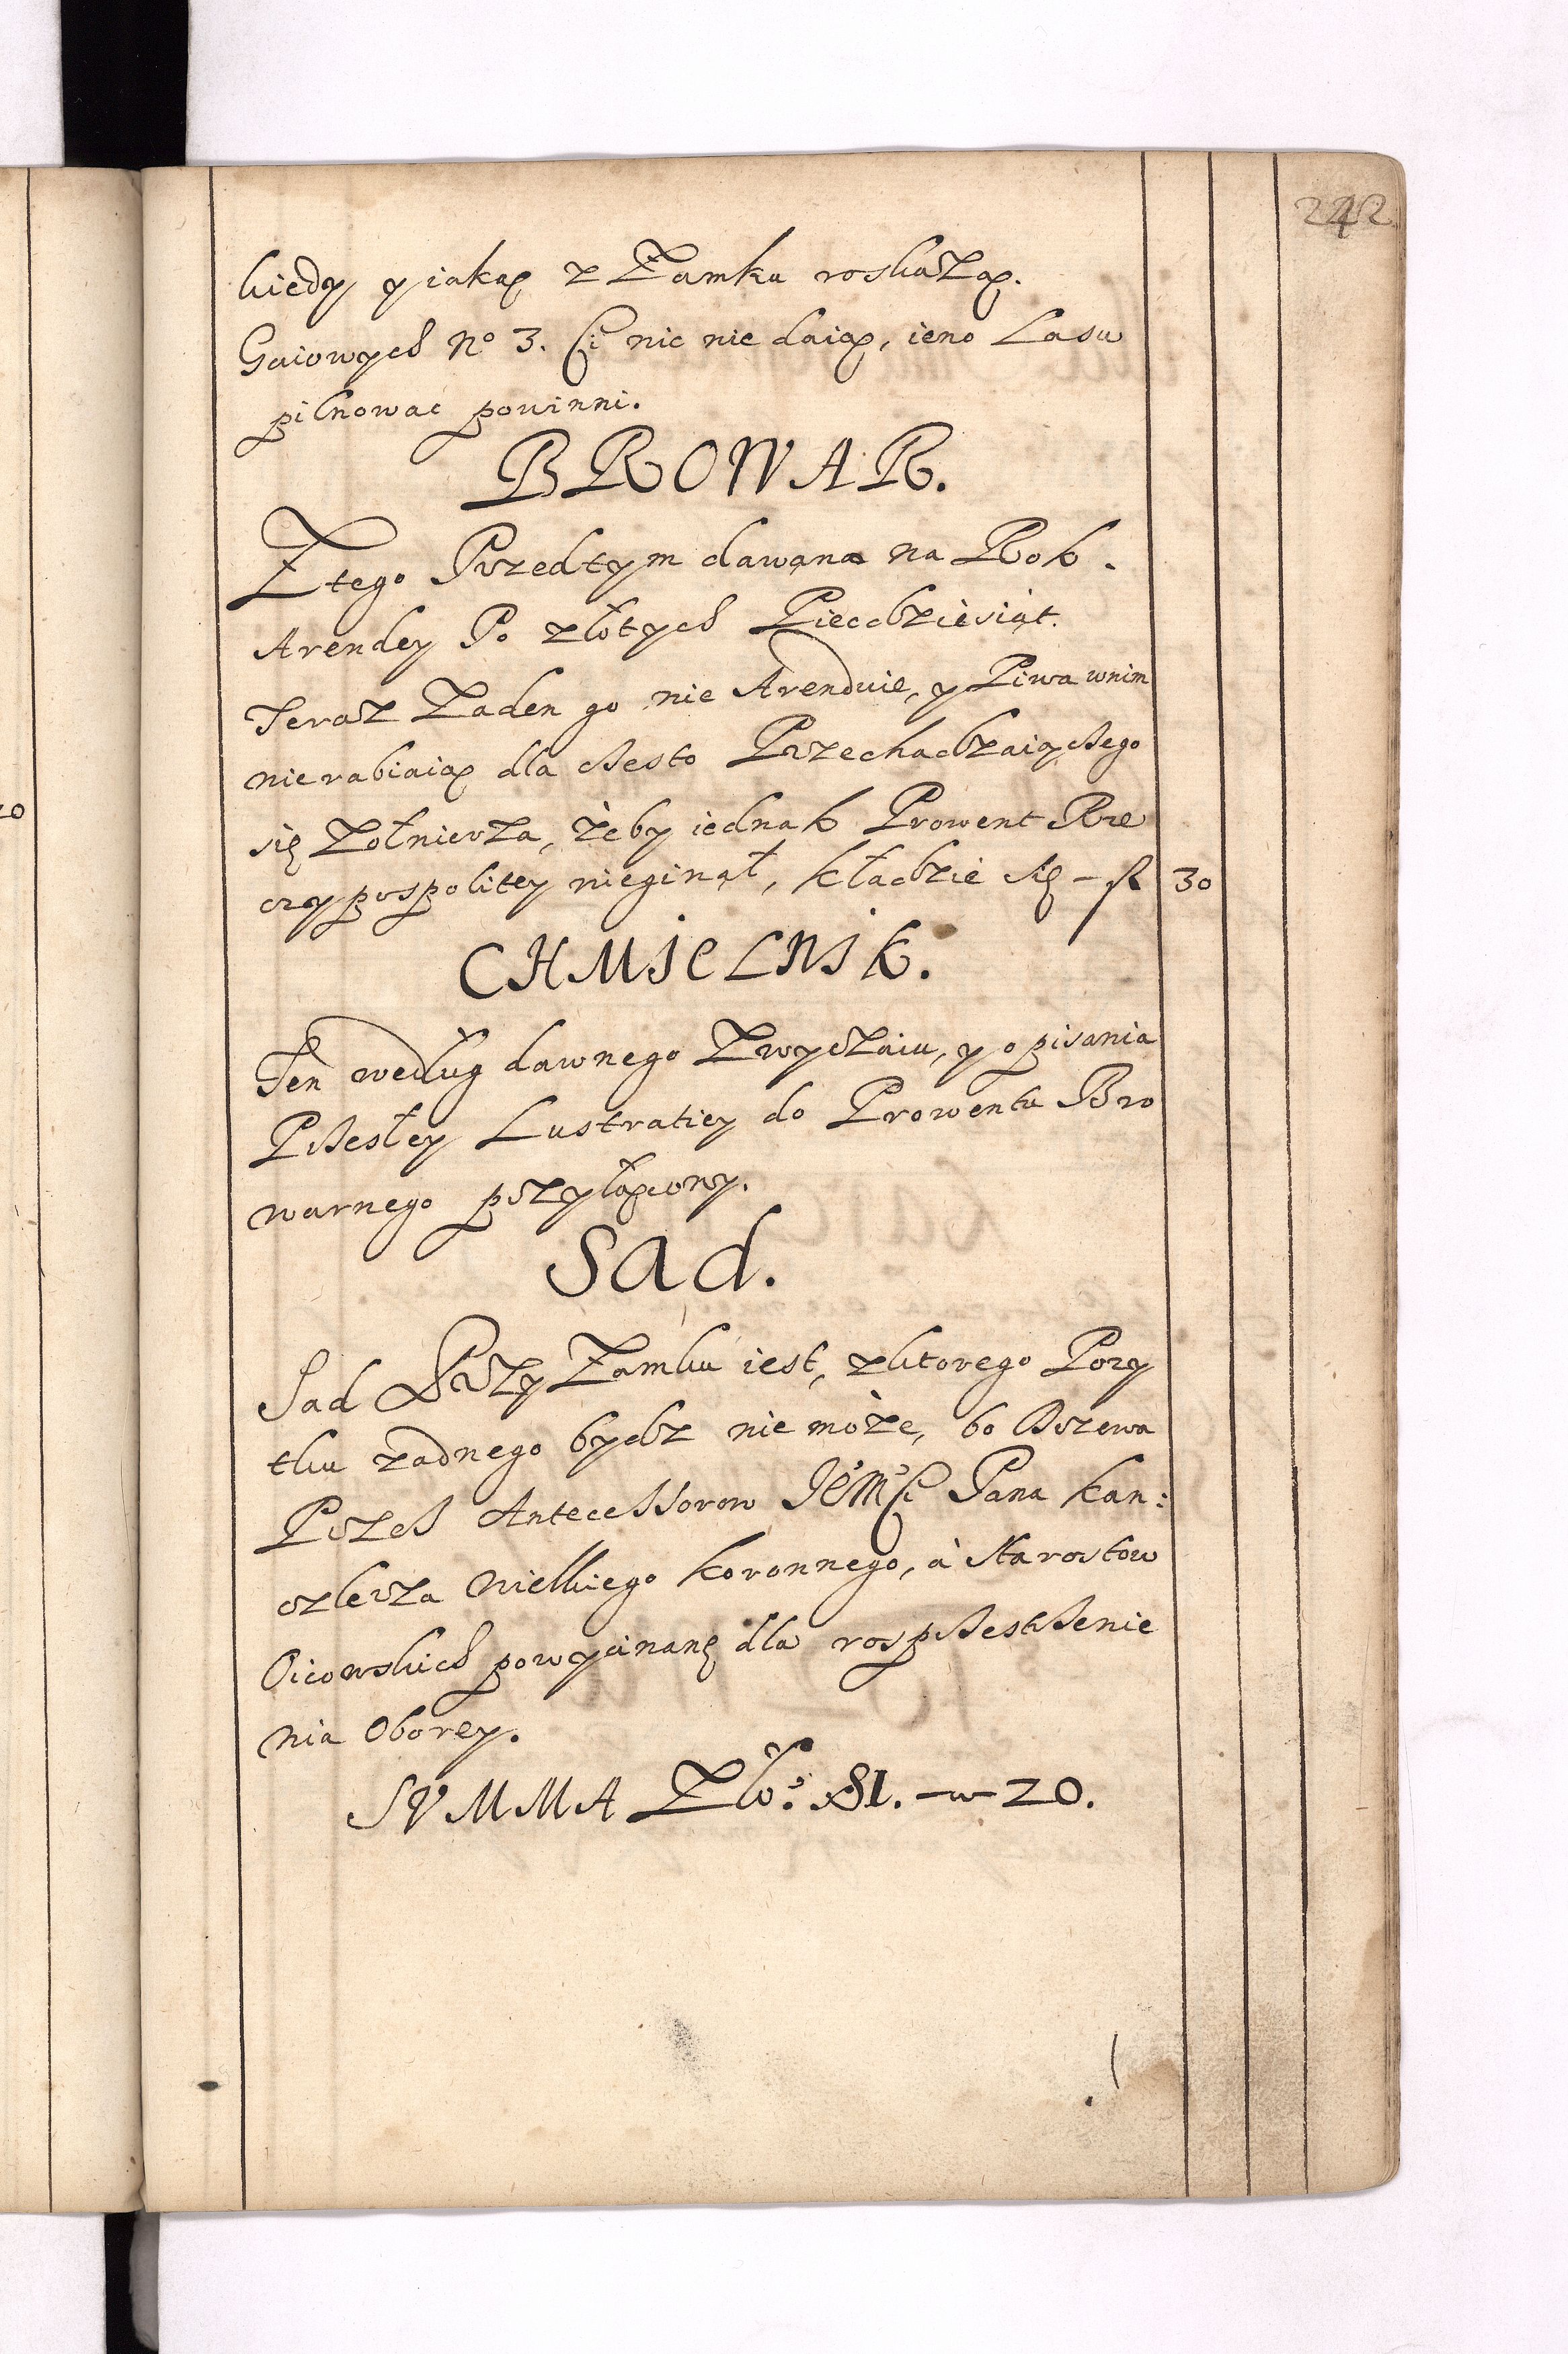 242
kiedy y iaką z Zamku roskażą.
Gaiowych No 3. Ci nic nie daią, ieno Lasu
pilnowac powinni.
BROWAR.
Z tego Przedtym dawana na Rok.
Arendy Po złotych Piecdziesiąt.
Teraz Zaden go nie Arenduie, y Piwa wnim
nierabiaią dla często Przechadzaiączego
się Zołnierza, żeby iednak Prowent Rze
czypospolitey nieginął, kładzie się – fl 30
CHMIELNIK.
Ten według dawnego Zwyczaiu, y opisania
Przesłey Lustratiey do Prowentu Bro
warnego przyłączony.
SAd.
Sad Przy Zamku iest, zktorego Pozy
tku żadnego bydz nie może, bo Drzewa
Przes Antecessorow JEMści Pana Kan:
clerza Wielkiego Koronnego, à Starostow
Oicowskich powycinane dla rosprzestrzenie
nia Obory.
SVMMA Zło: 81. – 20.